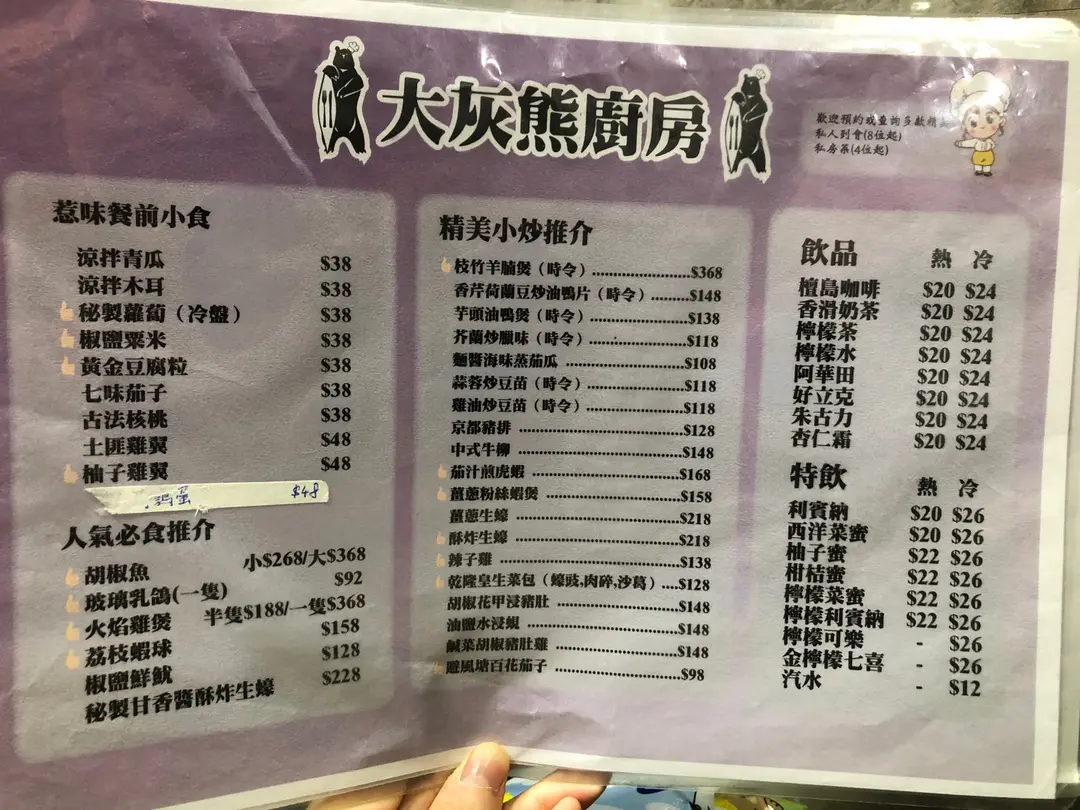 大灰熊廚房
歡迎預約或查詢多款精美
私人到會(8位起)
私房菜(4位起)
惹味餐前小食
涼拌青瓜 $38
涼拌木耳 $38
秘製蘿蔔（冷盤） $38
椒鹽粟米 $38
黃金豆腐粒 $38
七味茄子 $38
古法核桃 $38
土匪雞翼 $48
柚子雞翼 $48
蛋 $48
人氣必食推介
胡椒魚 小$268/大$368
玻璃乳鴿(一隻) $92
火焰雞煲 半隻$188/一隻$368
荔枝蝦球 $158
椒鹽鮮魷 $128
秘製甘香醬酥炸生蠔 $228
精美小炒推介
枝竹羊腩煲（時令）$368
香芹荷蘭豆炒油鴨片（時令）$148
芋頭油鴨煲（時令）$138
芥蘭炒臘味（時令）$118
麵醬海味蒸茄瓜 $108
蒜蓉炒豆苗（時令）$118
雞油炒豆苗（時令）$118
京都豬排 $128
中式牛柳 $148
茄汁煎虎蝦 $168
薑蔥粉絲蝦煲 $158
薑蔥生蠔 $218
酥炸生蠔 $218
辣子雞 $138
乾隆皇生菜包（蠔豉,肉碎,沙葛）$128
胡椒花甲浸豬肚 $148
油鹽水浸蜆 $148
鹹菜胡椒豬肚雞 $148
避風塘百花茄子 $98
飲品 熱 冷
檀島咖啡 $20 $24
香滑奶茶 $20 $24
檸檬茶 $20 $24
檸檬水 $20 $24
阿華田 $20 $24
好立克 $20 $24
朱古力 $20 $24
杏仁霜 $20 $24
特飲 熱 冷
利賓納 $20 $26
西洋菜蜜 $20 $26
柚子蜜 $22 $26
柑桔蜜 $22 $26
檸檬菜蜜 $22 $26
檸檬利賓納 $22 $26
檸檬可樂 - $26
金檸檬七喜 - $26
汽水 - $12